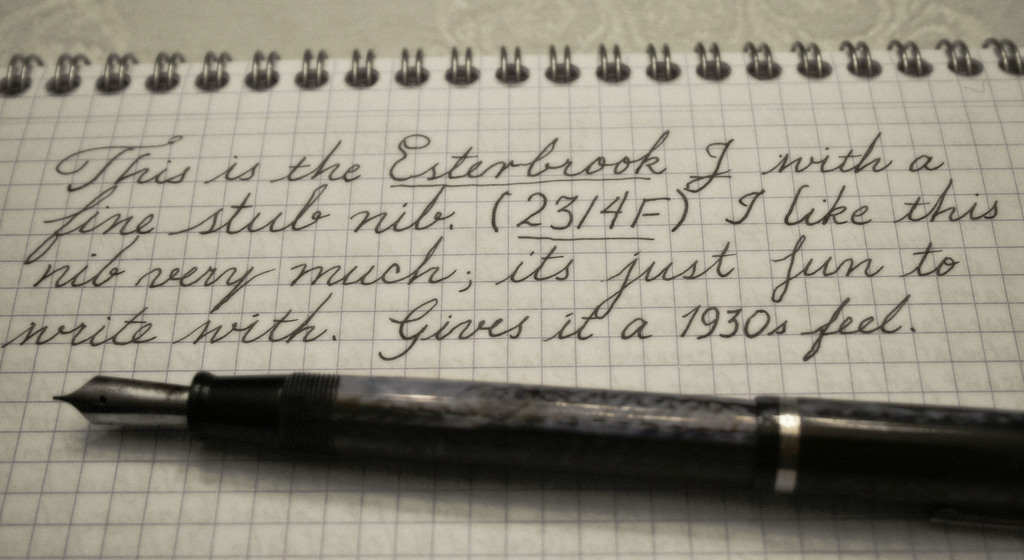 This is the Esterbrook J with a
fine stub nib. (2314F) I like this
nib very much; its just fun to
write with. Gives it a 1930s feel.